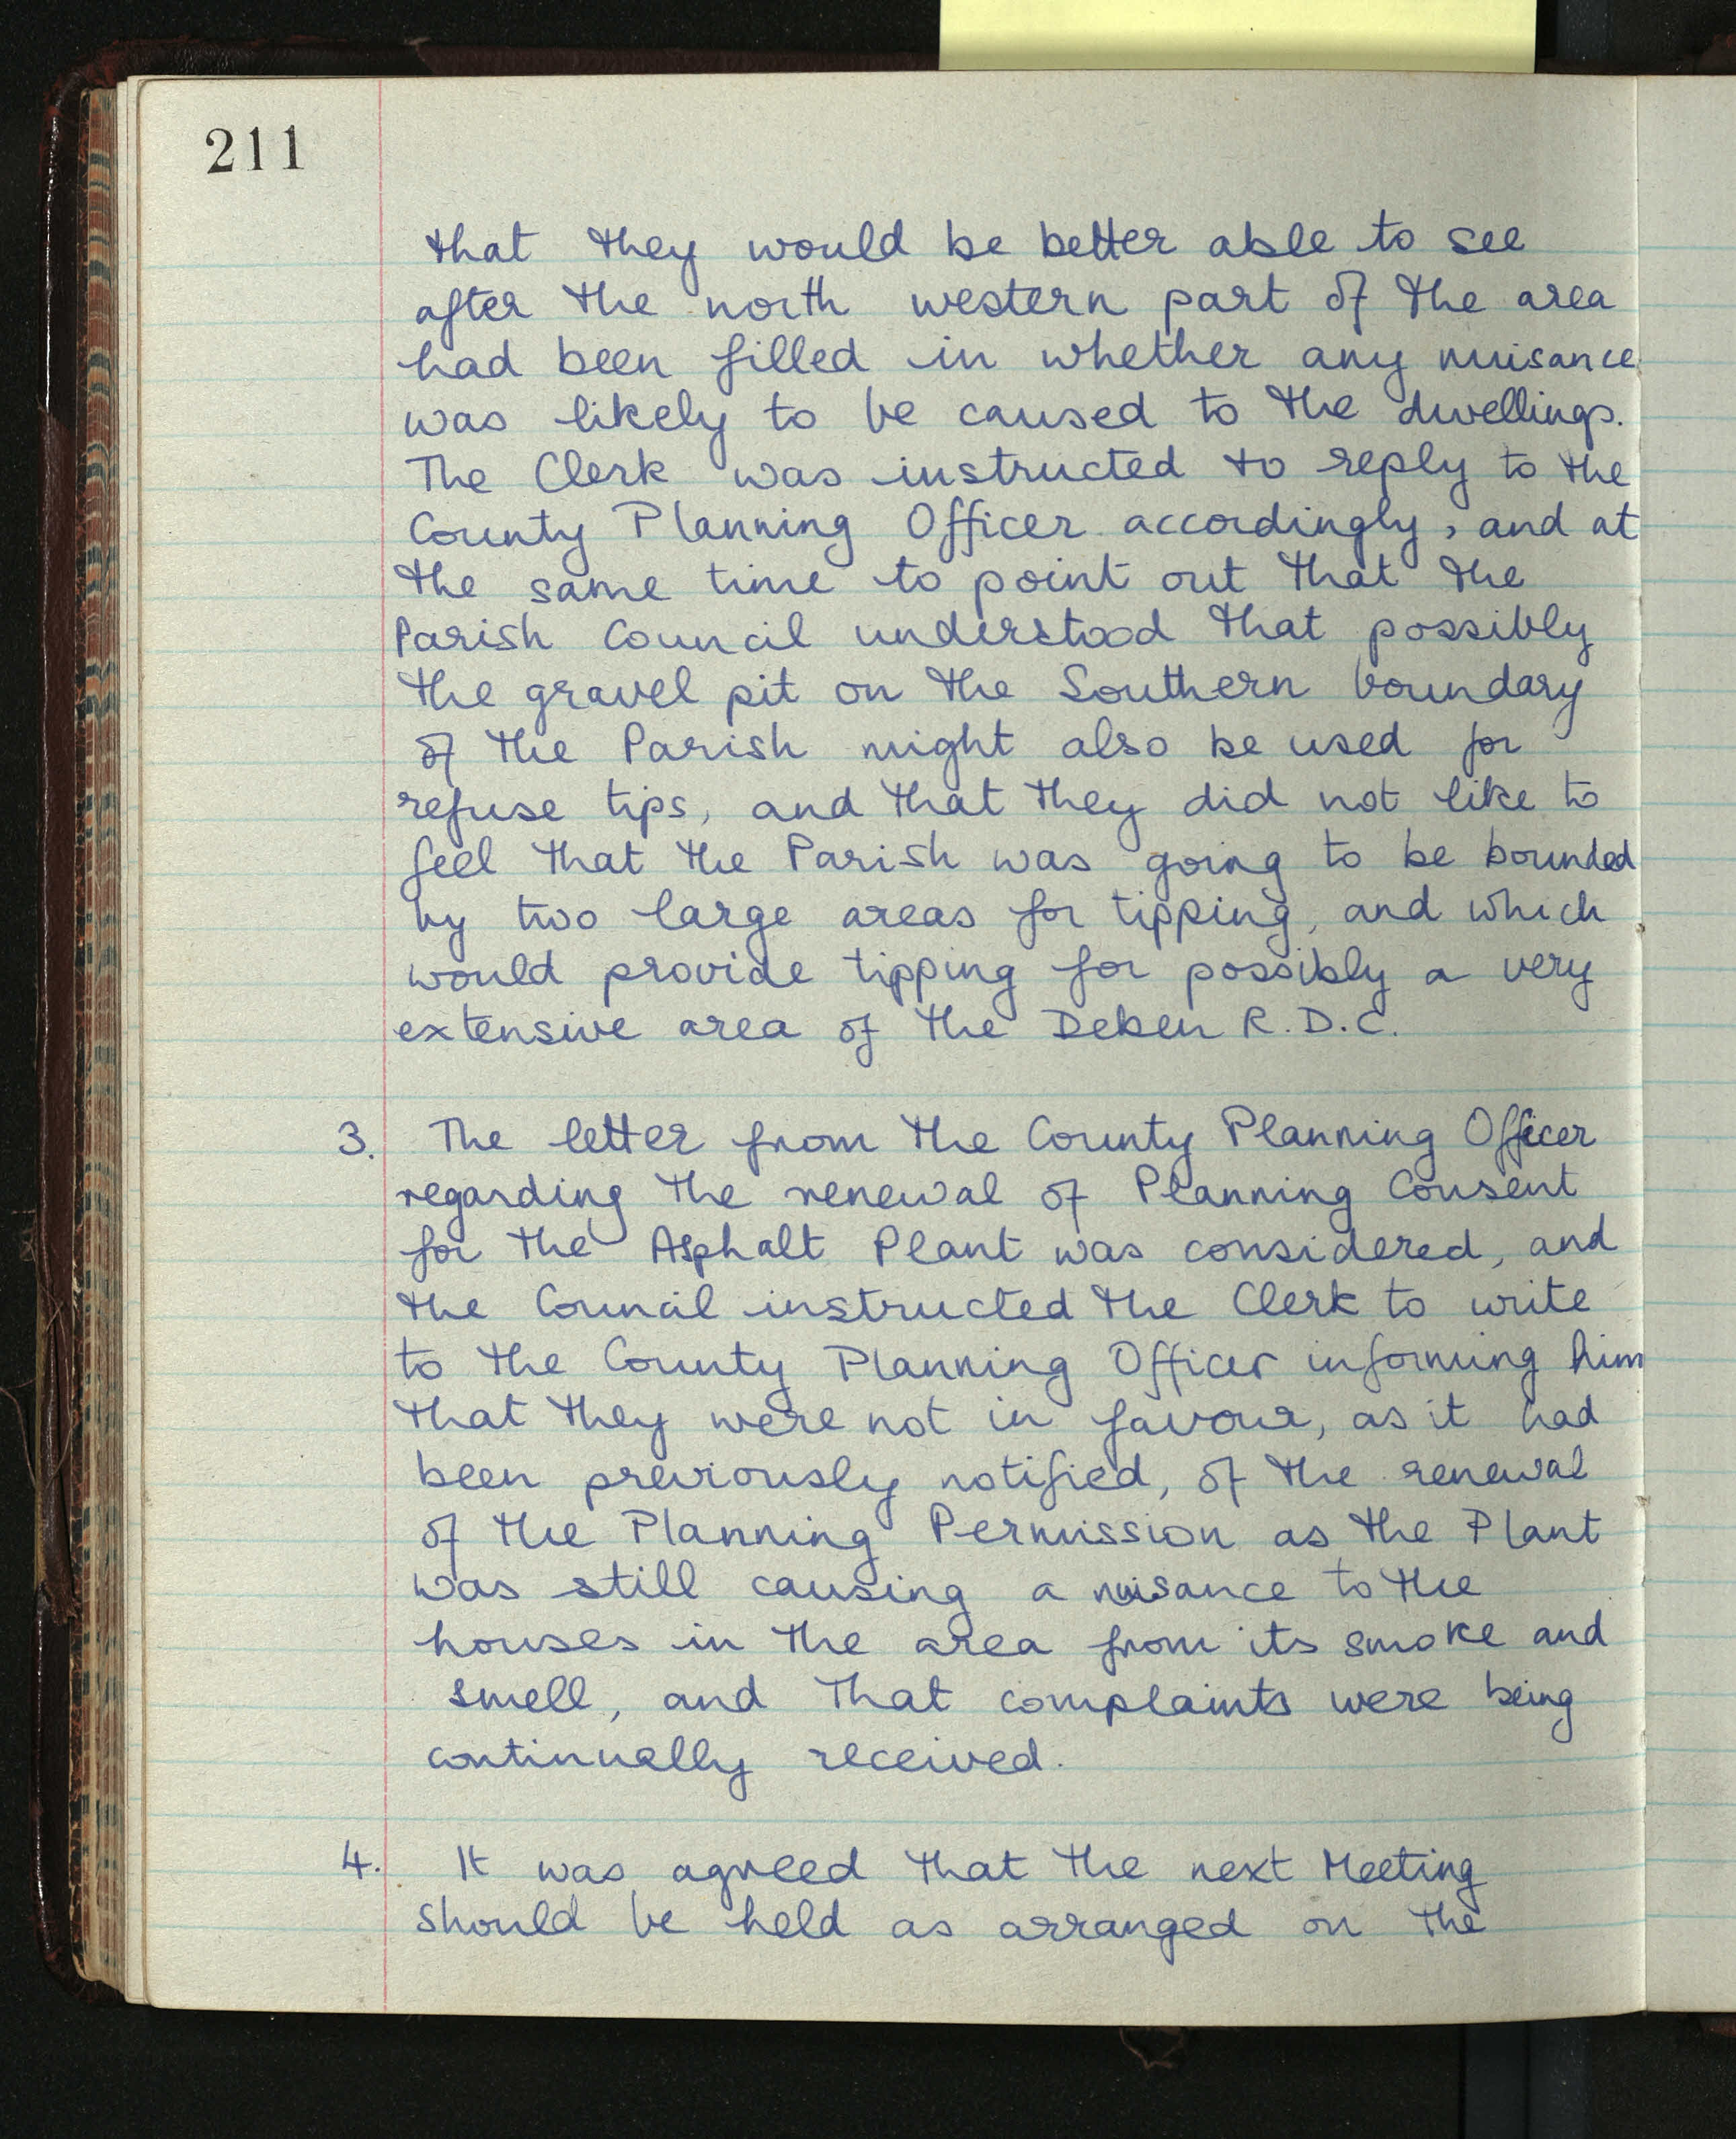 211
that they would be better able to see
after the north western part of the area
had been filled in whether any nuisance
was likely to be caused to the dwellings.
The Clerk was instructed to reply to the
County Planning Officer accordingly, and at
the same time to point out that the
Parish Council understood that possibly
the gravel pit on the Southern boundary
of the Parish might also be used for
refuse tips, and that they did not like to
feel that the Parish was going to be bounded
by two large areas for tipping, and which
would provide tipping for possibly a very
extensive area of the Deben R.D.C.
3. The letter from the County Planning Officer
regarding the renewal of Planning Consent
for the Asphalt Plant was considered, and
the Council instructed the Clerk to write
to the County Planning Officer informing him
that they were not in favour, as it had
been previously notified, of the renewal
of the Planning Permission as the Plant
was still causing a nuisance to the
houses in the area from its smoke and
smell, and that complaints were being
continually received.
4. It was agreed that the next Meeting
should be held as arranged on the